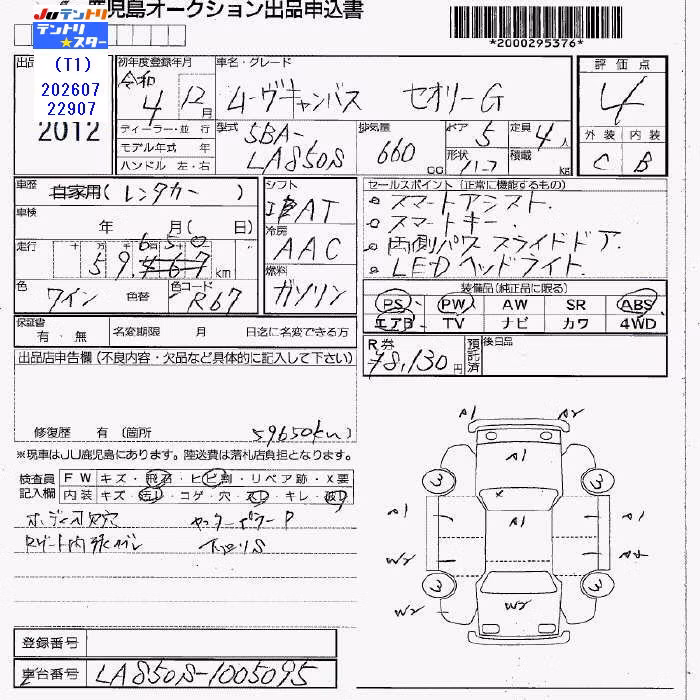 鹿児島オークション出品申込書
JUテントリ
テントリ★スター
*2000295376*
出品
(T1)
202607
22907
2012
初年度登録年月
令和 4 12月
車名・グレード
ムーヴキャンバス セオリーG
評価点
4
外装 内装
C B
ディーラー・並行
モデル年式 年
ハンドル 左・右
型式
5BA-
LA850S
排気量
660 cc
ドア 5
定員 4人
形状 ハコ
積載 kg
車歴
自家用(レンタカー)
車検
年 月( 日)
走行
十 万 千 百 十
650
59,467 km
色
ワイン
色替
色コード
R67
シフト
AT
冷房
AAC
燃料
ガソリン
セールスポイント (正常に機能するもの)
スマートアシスト.
スマートキー.
両側パワースライドドア.
LEDヘッドライト.
装備品(純正品に限る)
PS PW AW SR ABS
エアB TV ナビ カワ 4WD
保証書
有・無
名変期限 月 日迄に名変できる方
R券
¥8,130円
預託済
後日品
出品店申告欄(不良内容・欠品など具体的に記入して下さい)
修復歴 有 (箇所 59650km)
※現車はJU鹿児島にあります。陸送費は落札店負担となります。
検査員
記入欄
FW キズ・飛石・ヒビ割・リペア跡・X要
内装 キズ・・コゲ・穴・・キレ・
A1 A2
A1
3 3
A1 A1 A1
W2 A2
3 3
W2 W2
登録番号
車台番号
LA850S-1005095